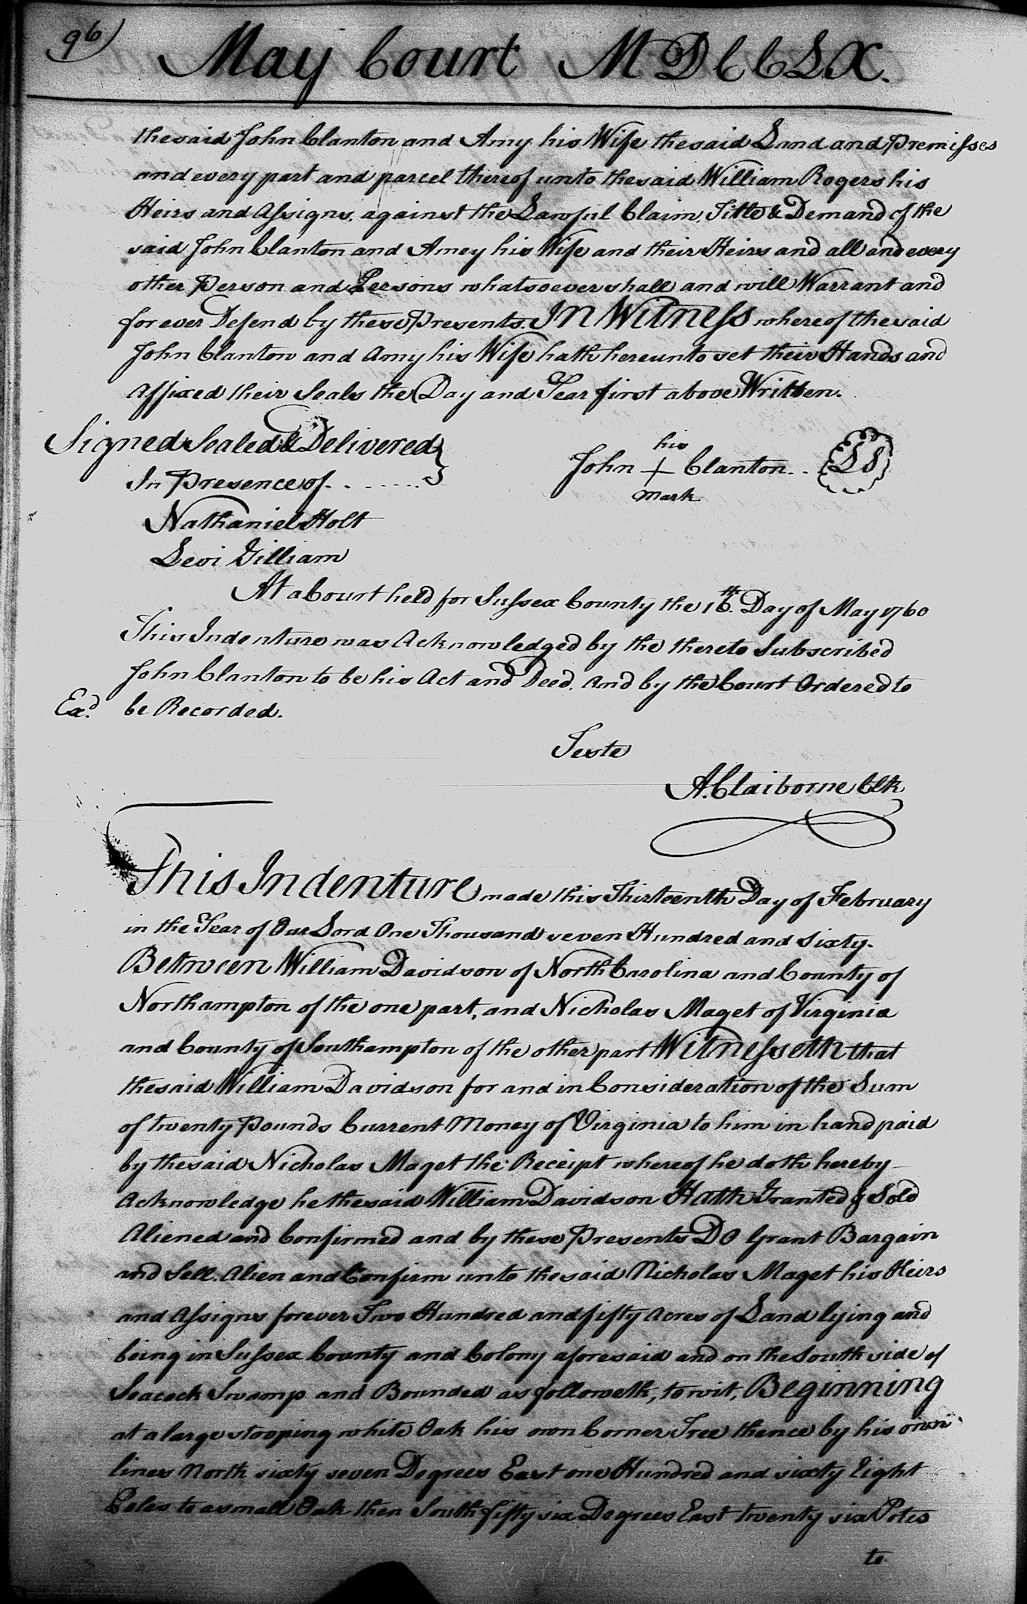 96)
May Court MDCCLX.
the said John Clanton and Amy his Wife the said Land and Premisses
and every part and parcel thereof unto the said William Rogers his
Heirs and Assigns, against the Lawful Claim, Title & Demand of the
said John Clanton and Amey his Wife and their Heirs and all and every
other Person and Persons whatsoever shall and will Warrant and
for ever Defend by these Presents. In Witness whereof the said
John Clanton and Amy his Wife hath hereunto set their Hands and
Affixed their Seals the Day and Year first above Written.
Signed Sealed & Delivered }
In Presence of . . . . . . . .
his
John + Clanton . . LS
mark
Nathaniel Holt
Levi Gilliam
At a Court held for Sussex County the 16th. Day of May 1760
This Indenture was Acknowledged by the thereto Subscribed
John Clanton to be his Act and Deed. And by the Court Ordered to
Exd. be Recorded.
Teste
A. Claiborne Clk
This Indenture made this Thirteenth Day of February
in the Year of Our Lord One Thousand seven Hundred and Sixty.
Between William Davidson of North Carolina and County of
Northampton of the one part, and Nicholas Maget of Virginia
and County of Southampton of the other part Witnesseth that
the said William Davidson for and in Consideration of the Sum
of twenty Pounds Current Money of Virginia to him in hand paid
by the said Nicholas Maget the Receipt whereof he doth hereby
Acknowledge he the said William Davidson Hath Granted & Sold
Aliened and Confirmed and by these Presents Do Grant Bargain
and Sell. Alien and Confirm unto the said Nicholas Maget his Heirs
and Assigns forever Two Hundred and fifty Acres of Land lying and
being in Sussex County and Colony aforesaid and on the South side of
Seacock Swamp and Bounded as followeth, to wit, Beginning
at a large stooping white Oak his own Corner Tree thence by his own
lines North sixty seven Degrees East one Hundred and sixty Eight
Poles to a small Oak then South fifty six Degrees East twenty six Poles
to